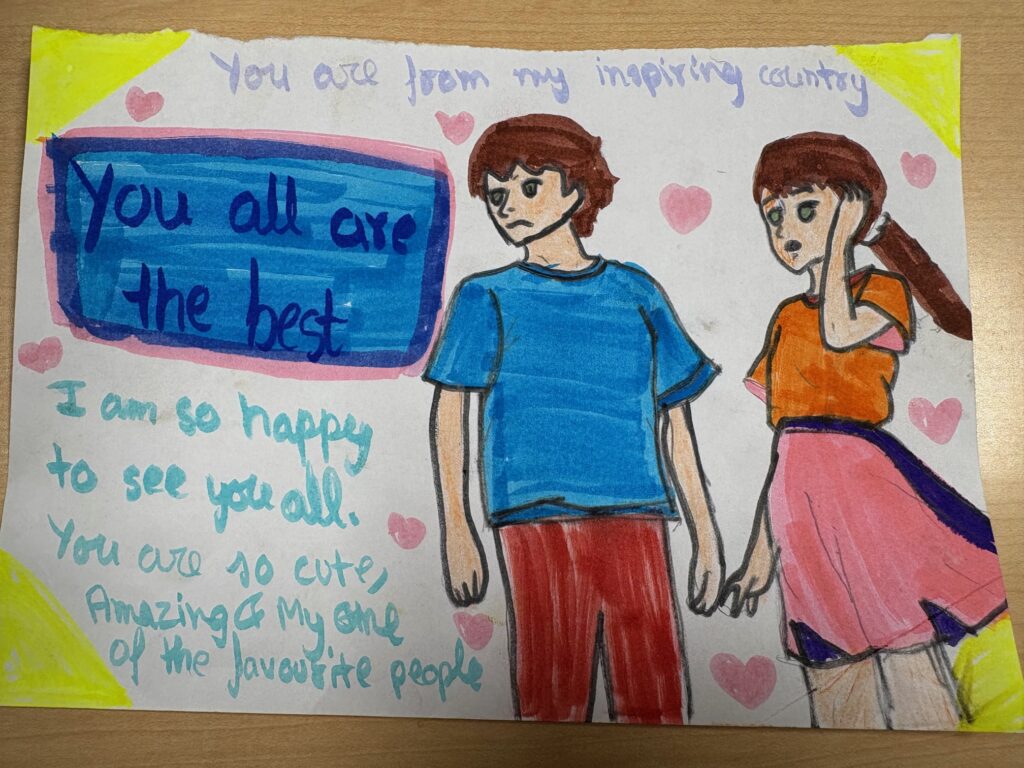 You are from my inspiring country
You all are
the best
I am so happy
to see you all.
You are so cute,
Amazing & My one
of the favourite people